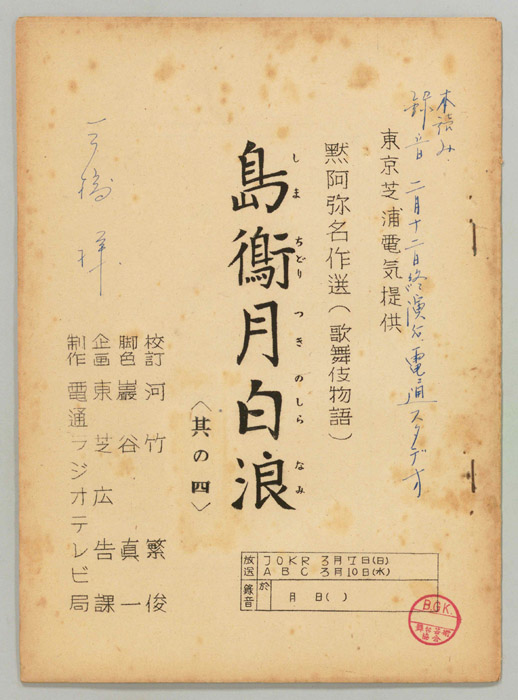 本読み
録音 二月十二日終演后、電通スタヂオ
東京芝浦電気提供
黙阿弥名作選(歌舞伎物語)
島鵆月白浪
しま ちどり つき の しら なみ
〈其の四〉
校訂 河竹繁俊
脚色 巌谷真一
企画 東芝広告課
制作 電通ラジオテレビ局
放送 JOKR 3月7日(日)
ABC 3月10日(水)
録音 於 月 日( )
B.G.K.